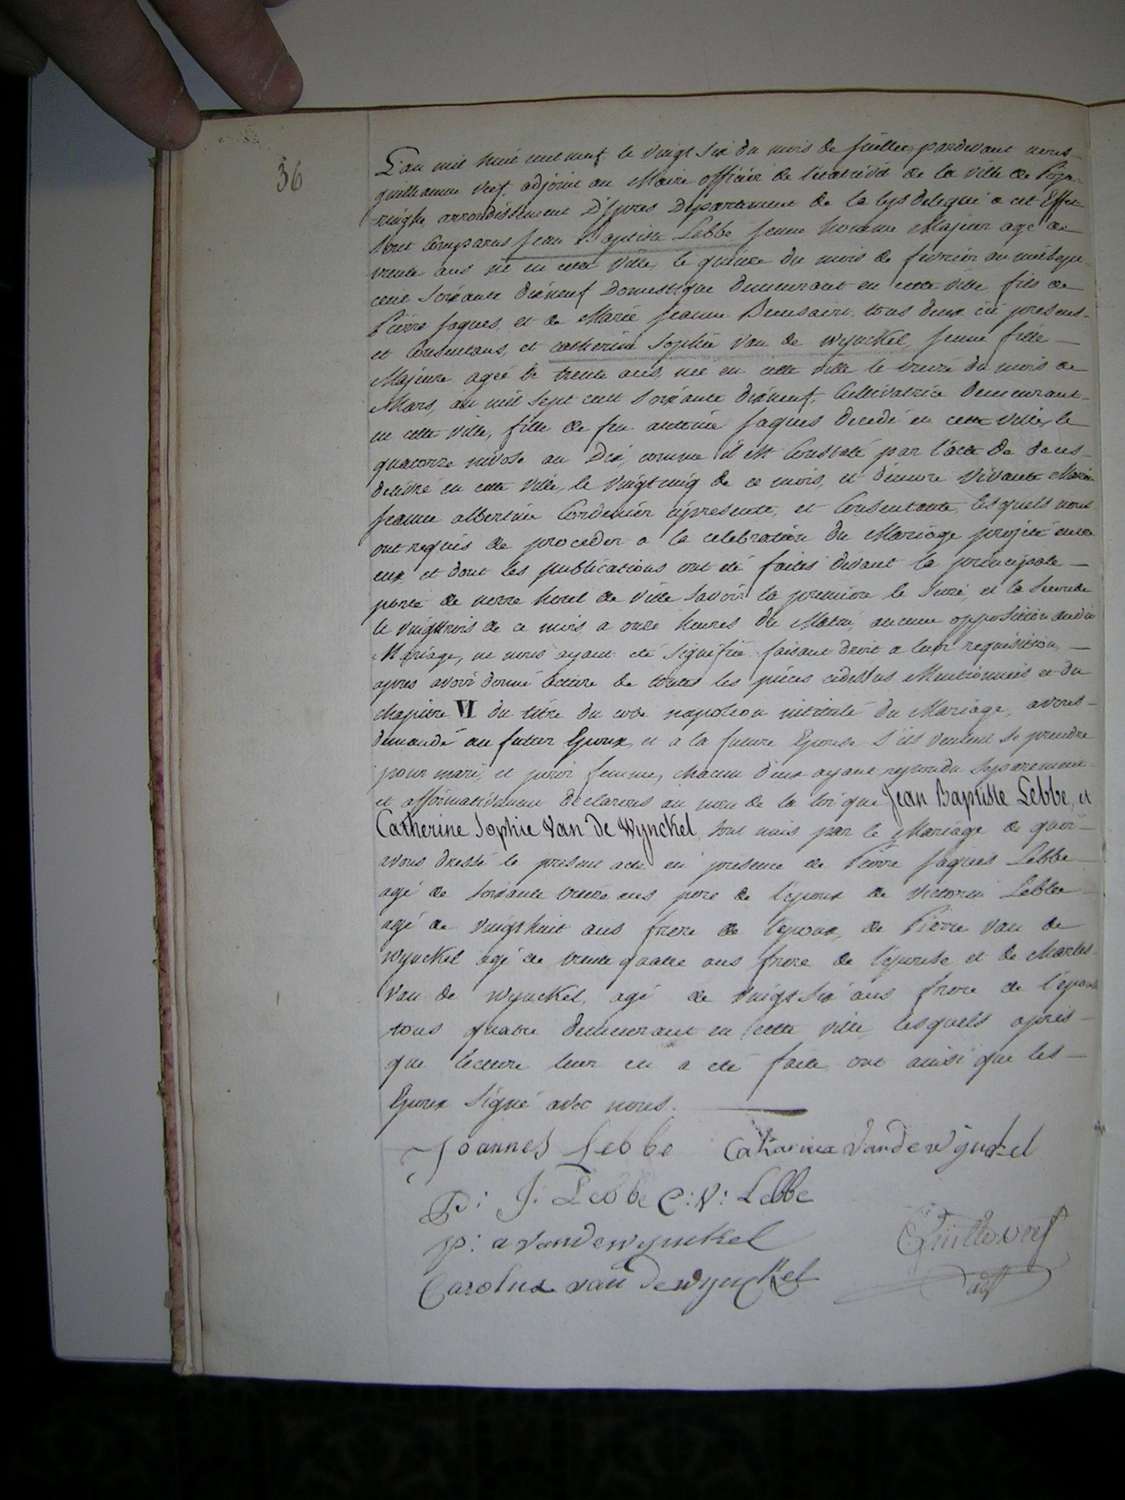 36
L'an mil huit cent neuf le vingt six du mois de juillet pardevant nous
guilleaume Verf adjoint au Maire officier de l'etat civil de la ville de Pope-
ringhe, arrondissement D'ypres Departement de la Lys delegué a cet Effet
sont Comparus Jean Baptiste Lebbe jeune homme Majeur agé de
trente ans né en cette ville, le quinze du mois de fevrier an mil sept
cent soixante dixneuf Domestique demeurant en cette ville, fils de
Pierre Jaques, et de Marie Jeanne tous deux ici presens
et Consentans, et catherine Sophie Van de Wynckel, jeune fille
Majeure ageé de trente ans, née en cette ville le treize du mois de
Mars, an mil sept cent soixante dixneuf, Cultivatrice demeurant
en cette ville, fille de feu antoine Jaques decedé en cette ville, le
quatorze nivose an Dix, comme il est Constaté par l'acte de deces
delivré en cette ville, le vingt cinq de ce mois, et d'encore vivante Marie
Jeanne albertine Cordenier cipresente, et Consentante, lesquels nous
ont requis de proceder a la celebration du Mariage projeté entre
eux et dont les publications ont eté faites devant la principale
porte de notre hotel de ville savoir la premiere le seize, et la seconde
le vingt trois de ce mois a onze heures du Matin, aucune opposition audit
Mariage, ne nous ayant eté signifiée faisant droit a leur requisition,
apres avoir donné lecture de toutes les pièces cidessus Mentionnées et du
chapitre VI du titre du code napoleon intitulé du Mariage, avons
demandé au futur Epoux, et a la future Epouse s'ils veulent se prendre
pour mari, et pour femme, chacun d'eux ayant repondu separement
et affirmativement declarons au nom de la loi que Jean Baptiste Lebbe, et
Catherine Sophie Van de Wynckel, sont unis par le Mariage de quoi
avons dressé le present acte en presence de Pierre Jaques Lebbe
agé de soixante treize ans pere de l'epoux de Victorin Lebbe
agé de vingt huit ans frere de l'epoux, de Pierre Van de
Wynckel agé de trente quatre ans frere de l'epouse et de Charles
Van de Wynckel, agé de vingt six ans frere de l'epouse
tous quatre demeurant en cette ville, lesquels apres
que lecture leur en a eté faite, ont ainsi que les
Epoux signé avec nous.
Joannes Lebbe Catharina Vande Wynckel
P: J: Lebbe C: V: Lebbe
p: a vande wynckel
Guille Verf
Carolus van de wynckel
adj